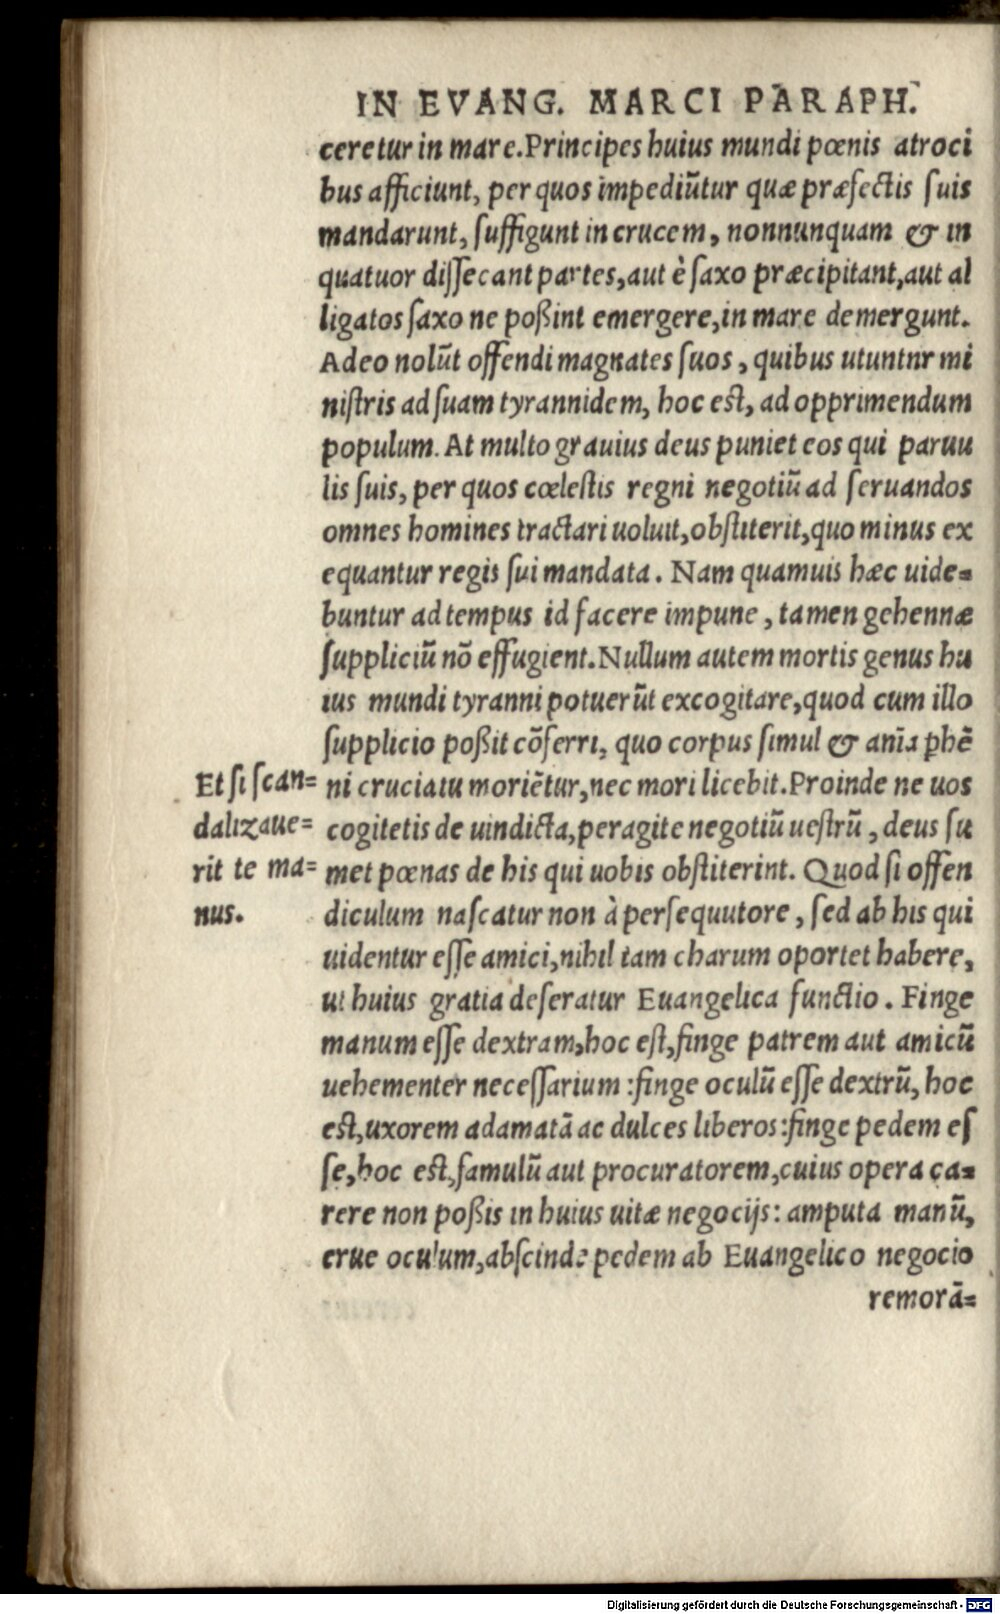 IN EVANG. MARCI PARAPH.
ceretur in mare. Principes huius mundi pœnis atroci
bus afficiunt, per quos impediũtur quæ præfectis ſuis
mandarunt, ſuffigunt in crucem, nonnunquam & in
quatuor diſſecant partes, aut è ſaxo præcipitant, aut al
ligatos ſaxo ne poßint emergere, in mare demergunt.
Adeo nolũt offendi magnates ſuos, quibus utuntnr mi
niſtris ad ſuam tyrannidem, hoc eſt, ad opprimendum
populum. At multo grauius deus puniet eos qui paruu
lis ſuis, per quos cœleſtis regni negotiũ ad ſeruandos
omnes homines tractari uoluit, obſtiterit, quo minus ex
equantur regis ſui mandata. Nam quamuis hæc uide=
buntur ad tempus id facere impune, tamen gehennæ
ſuppliciũ nõ effugient. Nullum autem mortis genus hu
ius mundi tyranni potuerũt excogitare, quod cum illo
ſupplicio poßit cõferri, quo corpus ſimul & anĩa ꝑhẽ
Et ſi ſcan=
dalizaue=
rit te ma=
nus.
ni cruciatu moriẽtur, nec mori licebit. Proinde ne uos
cogitetis de uindicta, peragite negotiũ ueſtrũ, deus ſu
met pœnas de his qui uobis obſtiterint. Quod ſi offen
diculum naſcatur non à perſequutore, ſed ab his qui
uidentur eſſe amici, nihil tam charum oportet habere,
ut huius gratia deſeratur Euangelica functio. Finge
manum eſſe dextram, hoc eſt, finge patrem aut amicũ
uehementer neceſſarium: finge oculũ eſſe dextrũ, hoc
eſt, uxorem adamatã ac dulces liberos: finge pedem eſ
ſe, hoc eſt, famulũ aut procuratorem, cuius opera ca=
rere non poßis in huius uitæ negocijs: amputa manũ,
erue oculum, abſcinde pedem ab Euangelico negocio
remorã=
Digitalisierung gefördert durch die Deutsche Forschungsgemeinschaft - DFG